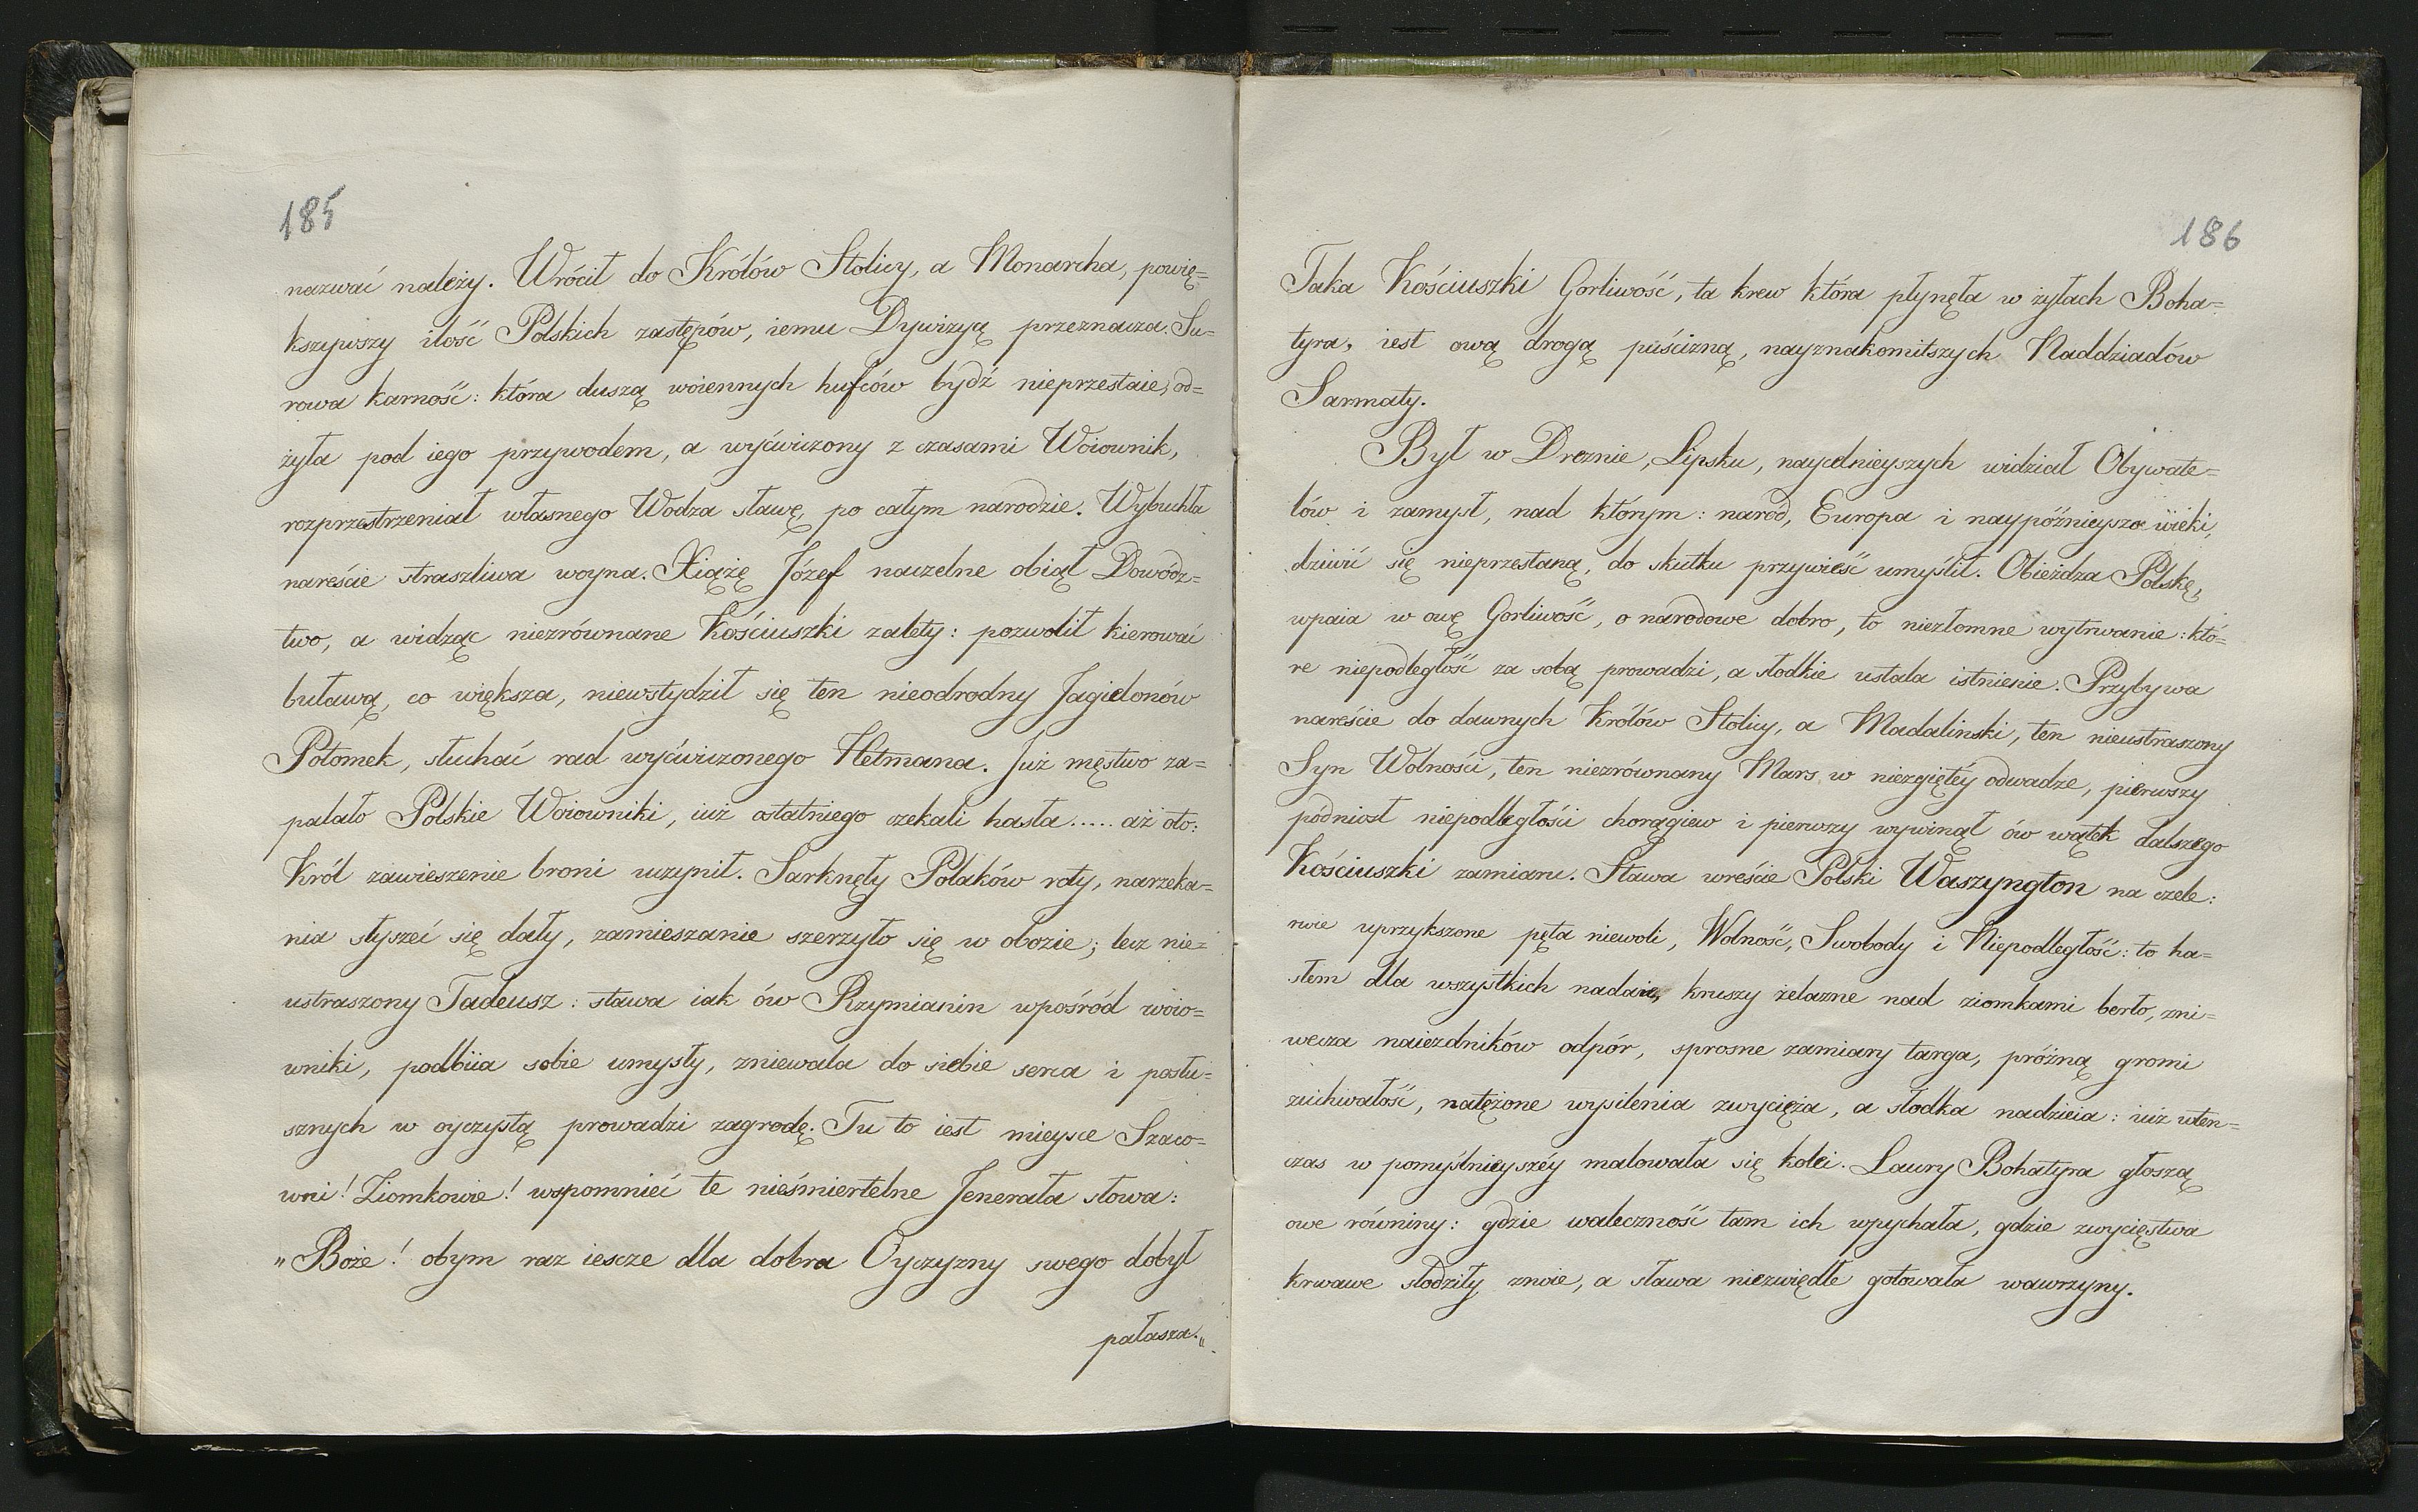 185
nazwać należy. Wrócił do Królów Stolicy, a Monarcha, powię=
kszywszy ilość Polskich zastępów, iemu Dywizyą przeznacza. Su=
rowa karność: która duszą woiennych hufców bydź nieprzestaie, od=
żyła pod iego przywodem, a wyćwiczony z czasami Woiownik,
rozprzestrzeniał własnego Wodza sławę, po całym narodzie. Wybuchła
nareście straszliwa woyna. Xiążę Józef naczelne obiął Dowódz=
two, a widząc niezrównane Kościuszki zalety: pozwolił kierować
buławą, co większa, niewstydził się ten nieodrodny Jagielonów
Potomek, słuchać rad wyćwiczonego Hetmana. Już męstwo za=
palało Polskie Woiowniki, iuż ostatniego czekali hasła..... aż oto:
Król zawieszenie broni uczynił. Sarknęły Polaków roty, narzeka=
nia słyszeć się dały, zamieszanie szerzyło się w obozie; lecz nie=
ustraszony Tadeusz: stawa iak ów Rzymianin wpośród woio=
wniki, podbiia sobie umysły, zniewala do siebie serca i posłu=
sznych w oyczystą prowadzi zagrodę. Tu to iest mieysce Szaco=
wni! Ziomkowie! wspomnieć te nieśmiertelne Jenerała słowa:
„Boże! obym raz iescze dla dobra Oyczyzny swego dobył
pałasza.„
186
Taka Kościuszki Gorliwość, ta krew która płynęła w żyłach Boha=
tyra, iest ową drogą puścizną, nayznakomitszych Naddziadów
Sarmaty.
Był w Dreznie, Lipsku, naycelnieyszych widział Obywate=
lów i zamysł, nad którym: naród, Europa i naypóźnieysze wieki,
dziwić się nieprzestaną, do skutku przywieść umyślił. Obieżdza Polskę,
wpaia w owę Gorliwość, o narodowe dobro, to niezłomne wytrwanie: któ=
re niepodległość za sobą prowadzi, a słodkie ustala istnienie. Przybywa
nareście do dawnych Królów Stolicy, a Madalinski, ten nieustraszony
Syn Wolności, ten niezrównany Mars w niezgiętéy odwadze, pierwszy
pódniosł niepodległości chorągiew i pierwszy wywinął ów wątek dalszego
Kościuszki zamiaru. Stawa wreście Polski Waszyngton na czele:
rwie uprzykszone pęta niewoli, Wolność, Swobody i Niepodległość: to ha=
słem dla wszystkich nadaie, kruszy żelazne nad ziomkami berło, zni=
wecza naiezdników odpór, sprosne zamiary targa, próżną gromi
zuchwałość, natężone wysilenia zwycięża, a słodka nadzieia: iuż wten=
czas w pomyślnieyszéy malowała się kolei. Laury Bohatyra głoszą
owe równiny: gdzie waleczność tam ich wpychała, gdzie zwycięstwa
krwawe słodziły znoie, a sława niezwiędłe gotowała wawrzyny.